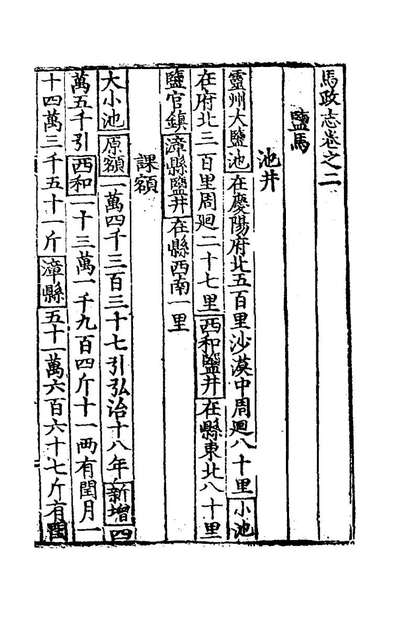 馬政志卷之二
鹽馬
池井
靈州大鹽池在慶陽府北五百里沙漠中周廻八十里小池
在府北三百里周廻二十七里西和鹽井在縣東北八十里
鹽官鎮漳縣鹽井在縣西南一里
課額
大小池原額一萬四千三百三十七引弘治十八年新增四
萬五千引西和一十三萬一千九百四斤十一两有閏月一
十四萬三千五十一斤漳縣五十一萬六百六十七斤有閏